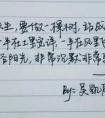 生,要做一棵树,站成
一半在土里安详,一半在风里
阳光,非常沉默非常
By: 吴凯